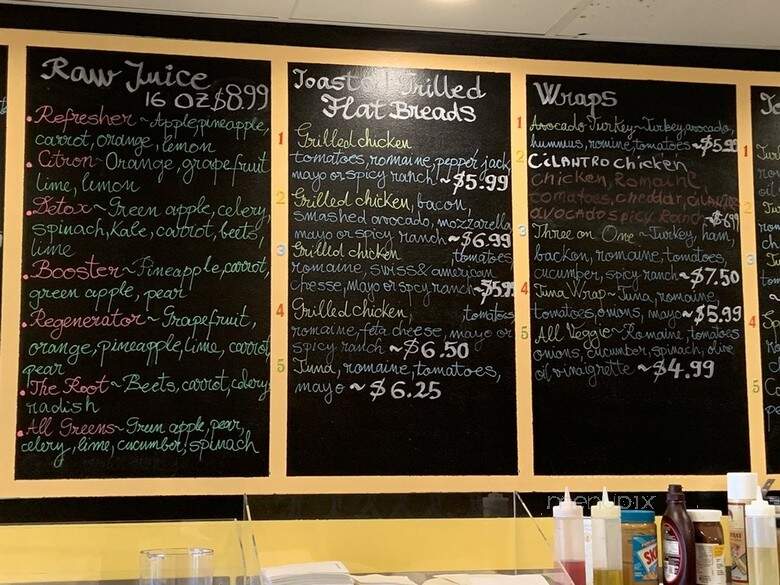 Raw Juice
16 OZ $8.99
• Refresher ~ Apple, pineapple,
carrot, orange, lemon
• Citron ~ Orange, grapefruit
lime, lemon
• Detox ~ Green apple, celery,
spinach, kale, carrot, beets,
lime
• Booster ~ Pineapple, carrot,
green apple, pear
• Regenerator ~ Grapefruit,
orange, pineapple, lime, carrot
pear
• The Root ~ Beets, carrot, celery
radish
• All Greens ~ Green apple, pear,
celery, lime, cucumber, spinach
Toasted Grilled
Flat Breads
1 Grilled chicken
tomatoes, romaine, pepper jack,
mayo or spicy ranch ~ $5.99
2 Grilled chicken, bacon,
smashed avocado, mozzarella
mayo or spicy ranch ~ $6.99
3 Grilled chicken tomatoes,
romaine, swiss & american
cheese, mayo or spicy ranch ~ $5.99
4 Grilled chicken, tomatoes,
romaine, feta cheese, mayo or
spicy ranch ~ $6.50
5 Tuna, romaine, tomatoes,
mayo ~ $6.25
Wraps
1 Avocado Turkey ~ Turkey, avocado,
hummus, romine, tomatoes ~ $5.99
2 CILANTRO chicken
chicken, Romaine
tomatoes, cheddar, cilantro
avocado spicy Ranch ~ $6.99
3 Three on One ~ Turkey, ham,
backen, romaine, tomatoes,
cucumber, spicy ranch ~ $7.50
4 Tuna Wrap ~ Tuna, romaine,
tomatoes, onions, mayo ~ $5.99
5 All Veggie ~ Romaine, tomatoes
onions, cucumber, spinach, olive
oil, vinaigrette ~ $4.99
1
2
3
4
5
menupix
SK